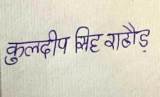 कुलदीप सिंह राठौड़